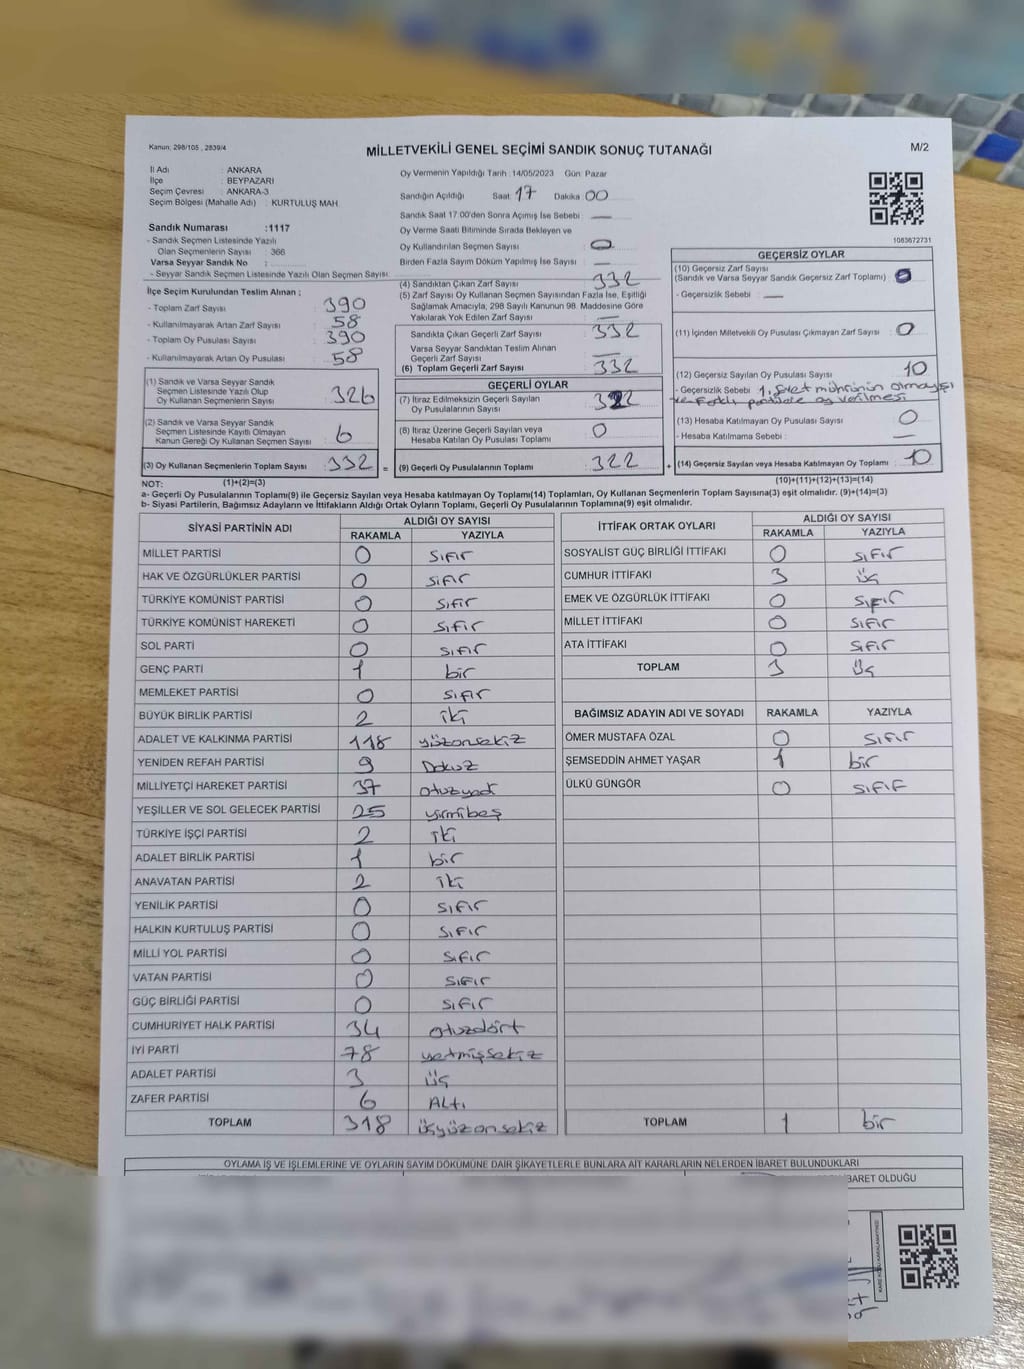 Kanun: 298/105 , 2839/4
MİLLETVEKİLİ GENEL SEÇİMİ SANDIK SONUÇ TUTANAĞI
M/2
İl Adı : ANKARA
İlçe : BEYPAZARI
Seçim Çevresi : ANKARA-3
Seçim Bölgesi (Mahalle Adı) : KURTULUŞ MAH.
Sandık Numarası :1117
- Sandık Seçmen Listesinde Yazılı
Olan Seçmenlerin Sayısı : 366
Varsa Seyyar Sandık No :
- Seyyar Sandık Seçmen Listesinde Yazılı Olan Seçmen Sayısı:
Oy Vermenin Yapıldığı Tarih :14/05/2023 Gün: Pazar
Sandığın Açıldığı Saat 17 Dakika 00
Sandık Saat 17:00'den Sonra Açımış İse Sebebi —
Oy Verme Saati Bitiminde Sırada Bekleyen ve
Oy Kullandırılan Seçmen Sayısı : 0
Birden Fazla Sayım Döküm Yapılmış İse Sayısı : —
1083672731
İlçe Seçim Kurulundan Teslim Alınan ;
- Toplam Zarf Sayısı : 390
- Kullanılmayarak Artan Zarf Sayısı : 58
- Toplam Oy Pusulası Sayısı : 390
- Kullanılmayarak Artan Oy Pusulası : 58
(1) Sandık ve Varsa Seyyar Sandık
Seçmen Listesinde Yazılı Olup
Oy Kullanan Seçmenlerin Sayısı : 326
(2) Sandık ve Varsa Seyyar Sandık
Seçmen Listesinde Kayıtlı Olmayan
Kanun Gereği Oy Kullanan Seçmen Sayısı : 6
(3) Oy Kullanan Seçmenlerin Toplam Sayısı : 332 =
(1)+(2)=(3)
(4) Sandıktan Çıkan Zarf Sayısı : 332
(5) Zarf Sayısı Oy Kullanan Seçmen Sayısından Fazla İse, Eşitliği
Sağlamak Amacıyla, 298 Sayılı Kanunun 98. Maddesine Göre
Yakılarak Yok Edilen Zarf Sayısı : —
Sandıkta Çıkan Geçerli Zarf Sayısı : 332
Varsa Seyyar Sandıktan Teslim Alınan
Geçerli Zarf Sayısı : —
(6) Toplam Geçerli Zarf Sayısı : 332
GEÇERLİ OYLAR
(7) İtiraz Edilmeksizin Geçerli Sayılan
Oy Pusulalarının Sayısı : 322
(8) İtiraz Üzerine Geçerli Sayılan veya
Hesaba Katılan Oy Pusulası Toplamı : 0
(9) Geçerli Oy Pusulalarının Toplamı : 322 +
GEÇERSİZ OYLAR
(10) Geçersiz Zarf Sayısı
(Sandık ve Varsa Seyyar Sandık Geçersiz Zarf Toplamı) : 0
- Geçersizlik Sebebi : —
(11) İçinden Milletvekili Oy Pusulası Çıkmayan Zarf Sayısı : 0
(12) Geçersiz Sayılan Oy Pusulası Sayısı : 10
- Geçersizlik Sebebi : mührünün olmayışı
ve Farklı partilere oy verilmesi
(13) Hesaba Katılmayan Oy Pusulası Sayısı : 0
- Hesaba Katılmama Sebebi : —
(14) Geçersiz Sayılan veya Hesaba Katılmayan Oy Toplamı : 10
(10)+(11)+(12)+(13)=(14)
NOT:
a- Geçerli Oy Pusulalarının Toplamı(9) ile Geçersiz Sayılan veya Hesaba katılmayan Oy Toplamı(14) Toplamları, Oy Kullanan Seçmenlerin Toplam Sayısına(3) eşit olmalıdır. (9)+(14)=(3)
b- Siyasi Partilerin, Bağımsız Adayların ve İttifakların Aldığı Ortak Oyların Toplamı, Geçerli Oy Pusulalarının Toplamına(9) eşit olmalıdır.
SİYASİ PARTİNİN ADI ALDIĞI OY SAYISI
RAKAMLA YAZIYLA
MİLLET PARTİSİ 0 sıfır
HAK VE ÖZGÜRLÜKLER PARTİSİ 0 sıfır
TÜRKİYE KOMÜNİST PARTİSİ 0 sıfır
TÜRKİYE KOMÜNİST HAREKETİ 0 sıfır
SOL PARTİ 0 sıfır
GENÇ PARTİ 1 bir
MEMLEKET PARTİSİ 0 sıfır
BÜYÜK BİRLİK PARTİSİ 2 iki
ADALET VE KALKINMA PARTİSİ 118 yüzonsekiz
YENİDEN REFAH PARTİSİ 9 Dokuz
MİLLİYETÇİ HAREKET PARTİSİ 37 otuzyedi
YEŞİLLER VE SOL GELECEK PARTİSİ 25 yirmibeş
TÜRKİYE İŞÇİ PARTİSİ 2 iki
ADALET BİRLİK PARTİSİ 1 bir
ANAVATAN PARTİSİ 2 iki
YENİLİK PARTİSİ 0 sıfır
HALKIN KURTULUŞ PARTİSİ 0 sıfır
MİLLİ YOL PARTİSİ 0 sıfır
VATAN PARTİSİ 0 sıfır
GÜÇ BİRLİĞİ PARTİSİ 0 sıfır
CUMHURİYET HALK PARTİSİ 34 otuzdört
İYİ PARTİ 78 yetmişsekiz
ADALET PARTİSİ 3 üç
ZAFER PARTİSİ 6 Altı
TOPLAM 318 üçyüzonsekiz
İTTİFAK ORTAK OYLARI ALDIĞI OY SAYISI
RAKAMLA YAZIYLA
SOSYALİST GÜÇ BİRLİĞİ İTTİFAKI 0 sıfır
CUMHUR İTTİFAKI 3 üç
EMEK VE ÖZGÜRLÜK İTTİFAKI 0 sıfır
MİLLET İTTİFAKI 0 sıfır
ATA İTTİFAKI 0 sıfır
TOPLAM 3 üç
BAĞIMSIZ ADAYIN ADI VE SOYADI RAKAMLA YAZIYLA
ÖMER MUSTAFA ÖZAL 0 sıfır
ŞEMSEDDİN AHMET YAŞAR 1 bir
ÜLKÜ GÜNGÖR 0 sıfır
TOPLAM 1 bir
OYLAMA İŞ VE İŞLEMLERİNE VE OYLARIN SAYIM DÖKÜMÜNE DAİR ŞİKAYETLERLE BUNLARA AİT KARARLARIN NELERDEN İBARET BULUNDUKLARI
BARET OLDUĞU